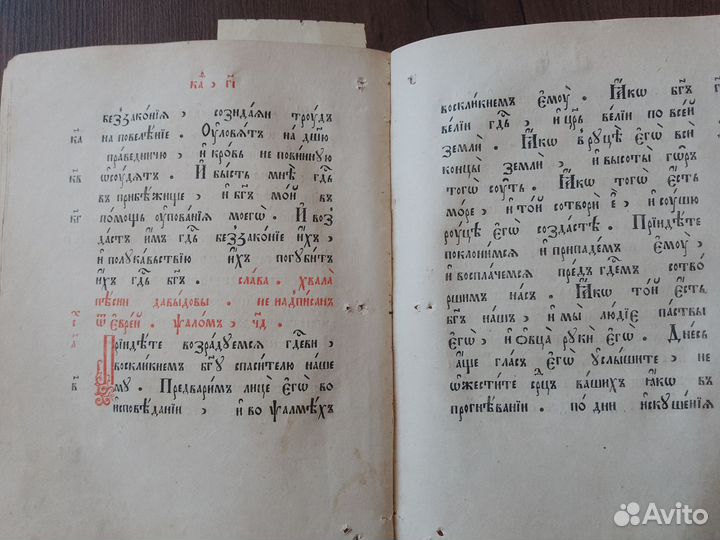 каѳ, гі
беззаконїѧ, созидаѧи троудъ
к҃а на повелѣнїе. Оуловѧтъ на дш҃ю
праведничю, и҆ кровь не повинную
к҃в ѡ҆соудѧтъ. И҆ бысть мнѣ гд҇ь
въ прибѣжище, и҆ бг҃ъ мо́й въ
к҃г помощь оупованїѧ моегѡ̀. И҆ воз
дастъ и҆мъ гд҇ь беззаконїе и҆́хъ,
и҆ полукавьствїю и҆́хъ погубитъ
и҆̀хъ гд҇ь бг҃ъ. слава. хвала̀
пѣсни давыдовы. не надписан
ѿ є҆врей. ѱалом, ч҃д.
а҃ Прїидѣте возрадуемсѧ гд҇еви,
воскликнемъ бг҃у спасителю наше
в҃ му. Предваримъ лице є҆гѡ̀ во
и҆сповѣданїи, и҆ во ѱалмѣхъ
воскликнемъ є҆моу̀. Ꙗ҆́кѡ бг҃ъ
велїи гд҇ь, и҆ цр҃ь велїи по всей
земли̇. Ꙗ҆́кѡ в̾руцѣ є҆гѡ̀ всѝ
концы̀ земли̇, и҆ высоты̀ го́ръ
тогѡ̀ соу́ть. Ꙗ҆́кѡ тогѡ̀ є҆сть
мо́ре, и҆ то́й сотворѝ є҆̀, и҆ соушю
роуцѣ є҆гѡ̀ создастѣ. Прїидѣте
поклонимсѧ и҆ припадемъ є҆моу̀,
и҆ восплачемсѧ предъ гд҇емъ сотво
ршимъ насъ. Ꙗ҆́кѡ то́й є҆сть
бг҃ъ нашъ, и҆ мы̀ лю́дїе паствы
є҆гѡ̀, и҆ ѻ҆вца̀ руки̇ є҆гѡ̀. Дне́сь
а҆́ще гласъ є҆гѡ̀ оуслышите, не
ѡ҆жестите срд҇цъ вашихъ ꙗ҆́кѡ въ
прогнѣванїи. по днѝ и҆скушенїѧ
Avito